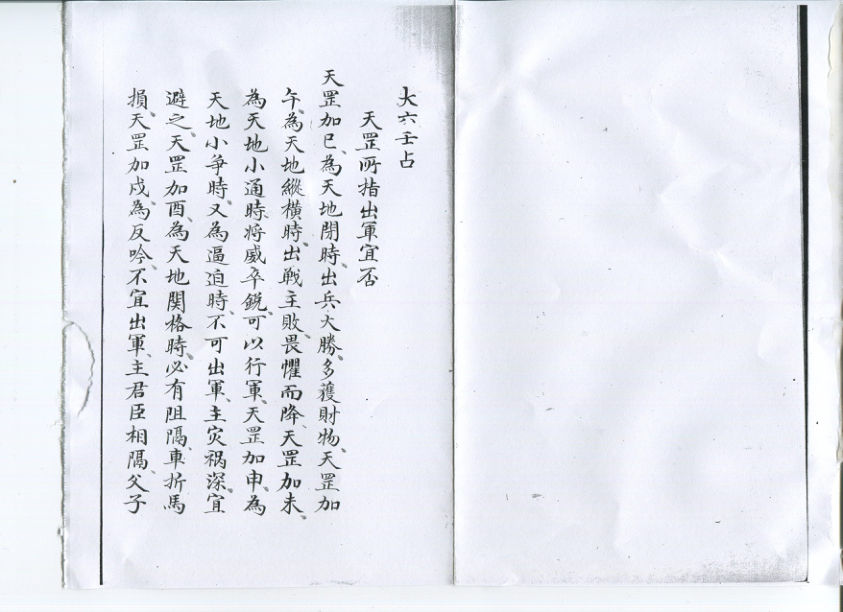 大六壬占
天罡所指出軍宜否
天罡加巳、為天地閉時、出兵大勝、多獲財物、天罡加
午、為天地縱橫時、出戰主敗、畏懼而降、天罡加未、
為天地小通時、将威卒銳、可以行軍、天罡加申、為
天地小爭時、又為逼迫時、不可出軍、主灾禍深、宜
避之、天罡加酉、為天地関格時、必有阻隔、車折馬
損、天罡加戌、為反吟、不宜出軍、主君臣相隔、父子